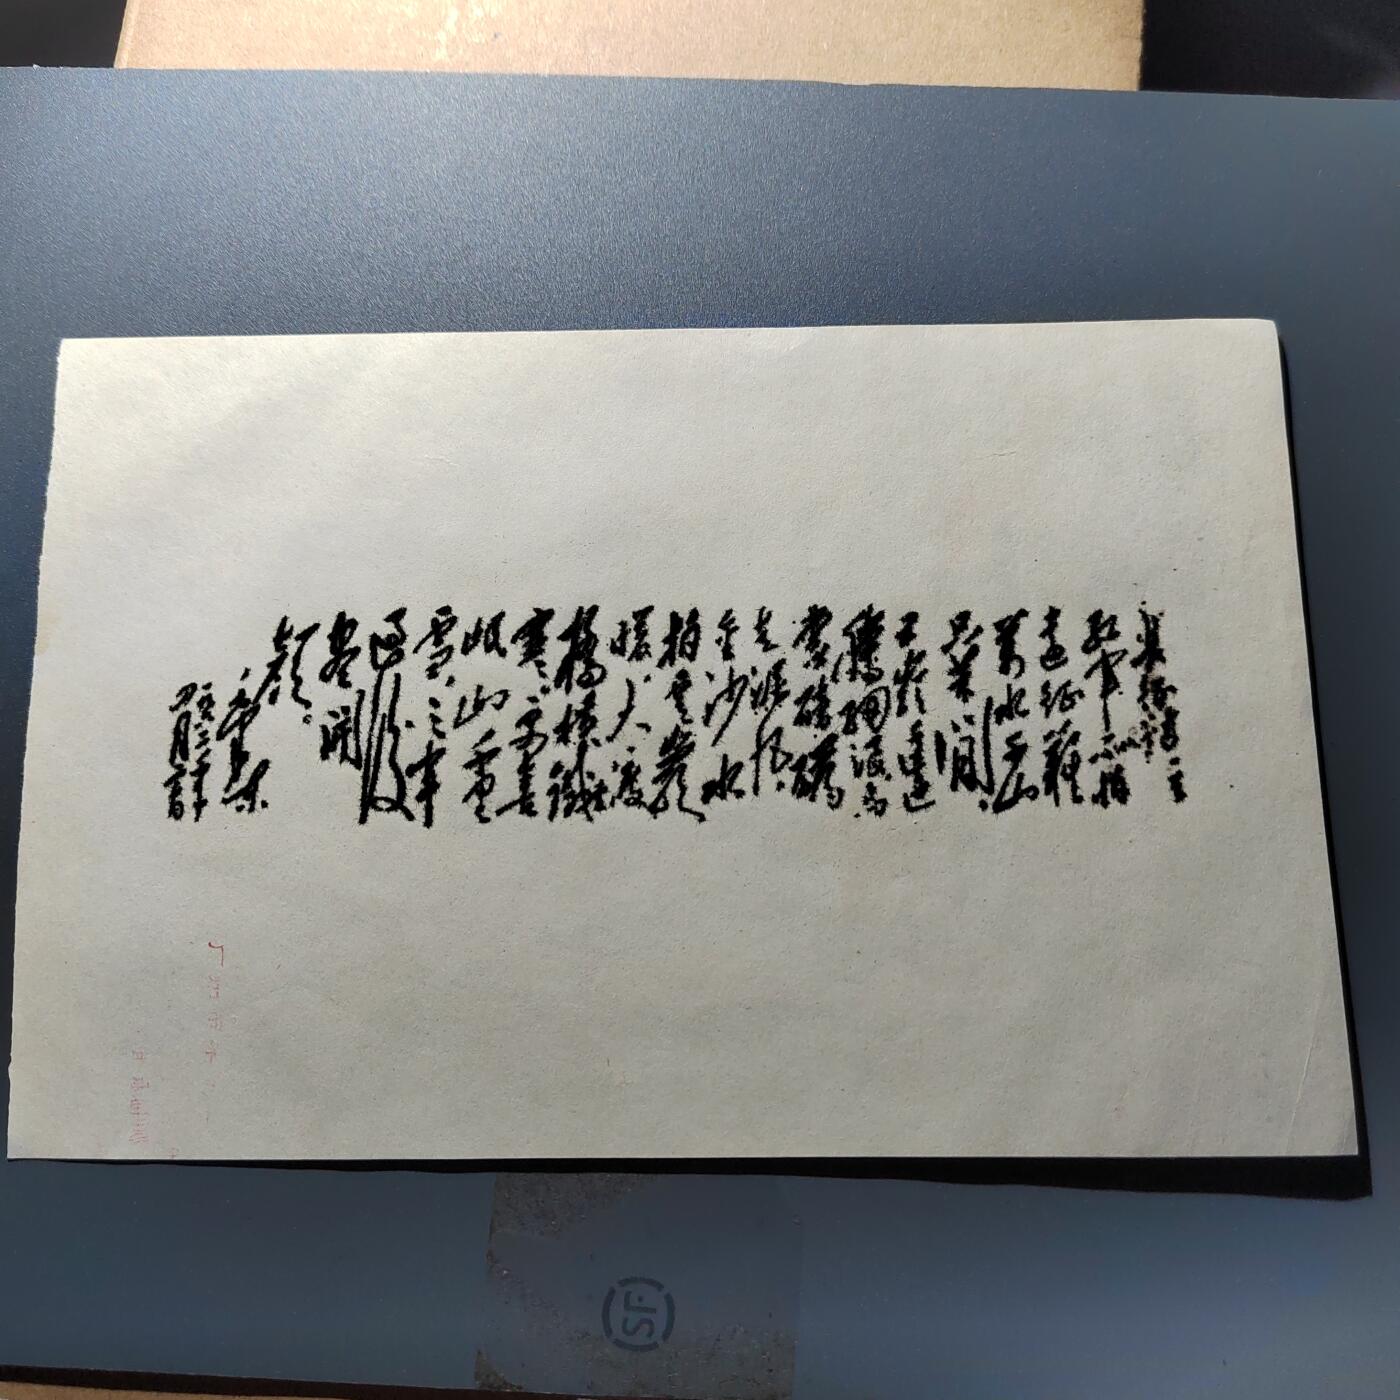 長征詩一首
红軍不怕
遠征難
萬水千山
只等閒
五岭逶迤
騰細浪烏
蒙磅礴
走泥丸
金沙水
拍雲崖
暖大渡
橋横鐵索
寒更喜
岷山千里
雪三軍
過後
盡開
顔
毛澤東
SF